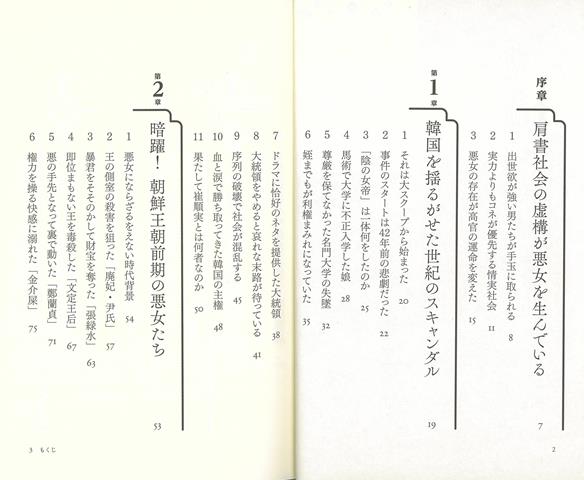 序章 肩書社会の虚構が悪女を生んでいる 7
1 出世欲が強い男たちが手玉に取られる 8
2 実力よりもコネが優先する情実社会 11
3 悪女の存在が高官の運命を変えた 15
第1章 韓国を揺るがせた世紀のスキャンダル 19
1 それは大スクープから始まった 20
2 事件のスタートは42年前の悲劇だった 22
3 「陰の女帝」は一体何をしたのか 25
4 馬術で大学に不正入学した娘 28
5 尊厳を保てなかった名門大学の失墜 32
6 姪までもが利権まみれになっていた 35
2
7 ドラマに恰好のネタを提供した大統領 38
8 大統領をやめると哀れな末路が待っている 41
9 序列の破壊で社会が混乱する 45
10 血と涙で勝ち取ってきた韓国の主権 48
11 果たして崔順実とは何者なのか 50
第2章 暗躍！ 朝鮮王朝前期の悪女たち 53
1 悪女にならざるをえない時代背景 54
2 王の側室の殺害を狙った「廃妃・尹氏」 57
3 暴君をそそのかして財宝を奪った「張緑水」 63
4 即位まもない王を毒殺した「文定王后」 67
5 悪の手先となって裏で動いた「鄭蘭貞」 71
6 権力を操る快感に溺れた「金介屎」 75
3 もくじ